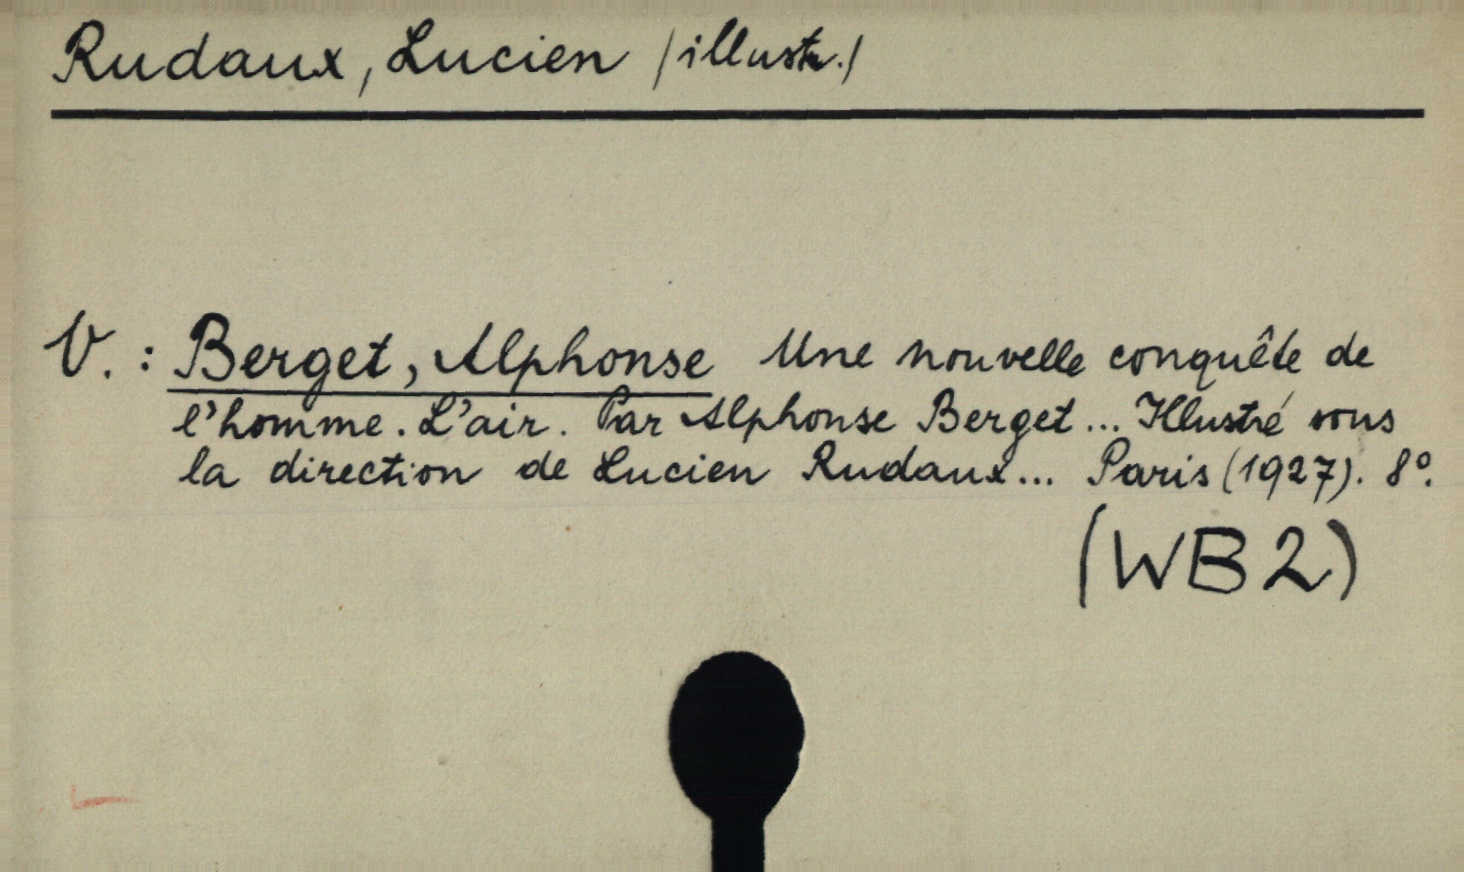 Rudaux, Lucien /illustr./
V. : Berget, Alphonse Une nouvelle conquête de
l'homme. L'air. Par Alphonse Berget... Illustré sous
la direction de Lucien Rudaux... Paris (1927). 8°.
(WB2)